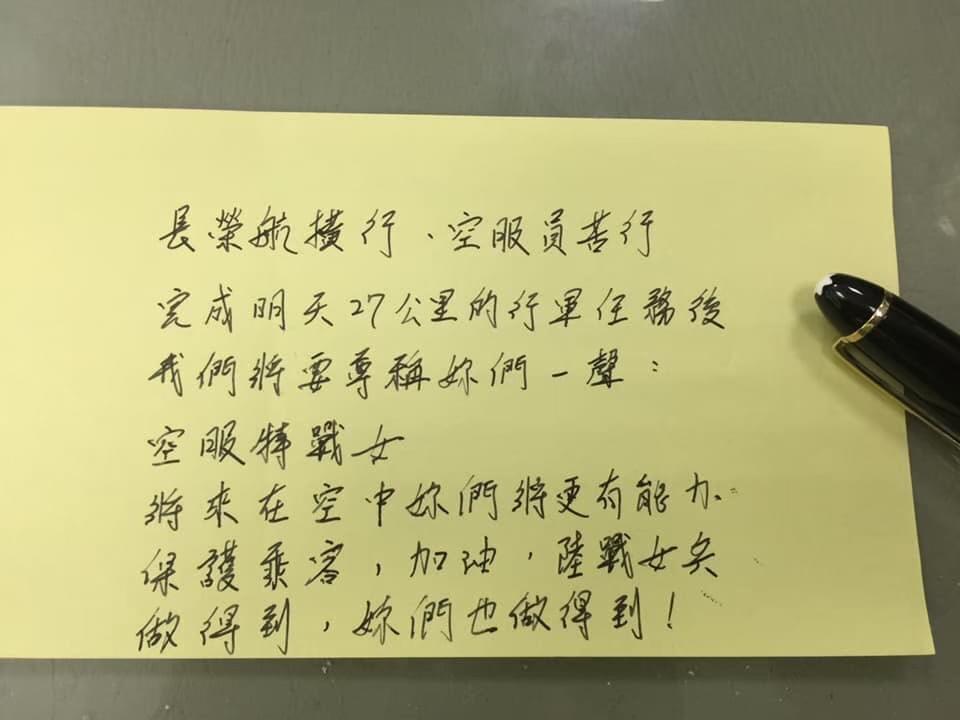 長榮航橫行、空服員苦行
完成明天27公里的行軍任務後
我們將要尊稱妳們一聲：
空服特戰女
將來在空中妳們將更有能力
保護乘客，加油，陸戰女兵
做得到，妳們也做得到！